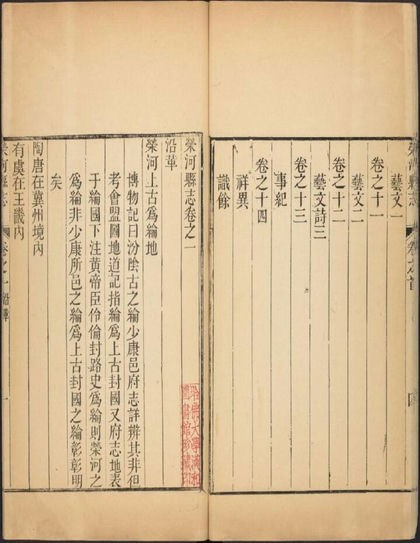 榮河縣志 卷之首 四
藝文一
卷之十一
藝文二
卷之十二
藝文詩三
卷之十三
事紀
卷之十四
祥異
識餘
榮河縣志卷之一
沿革
榮河上古為綸地
博物記曰汾陰古之綸少康邑府志詳辨其非但
考會盟圖地道記指綸為上古封國又府志地表
于綸國下注黃帝臣伶倫封路史為綸則榮河之
為綸非少康所邑之綸為上古封國之綸彰彰明
矣
陶唐在冀州境內
有虞在王畿內
榮河縣志 卷之一 沿革 一